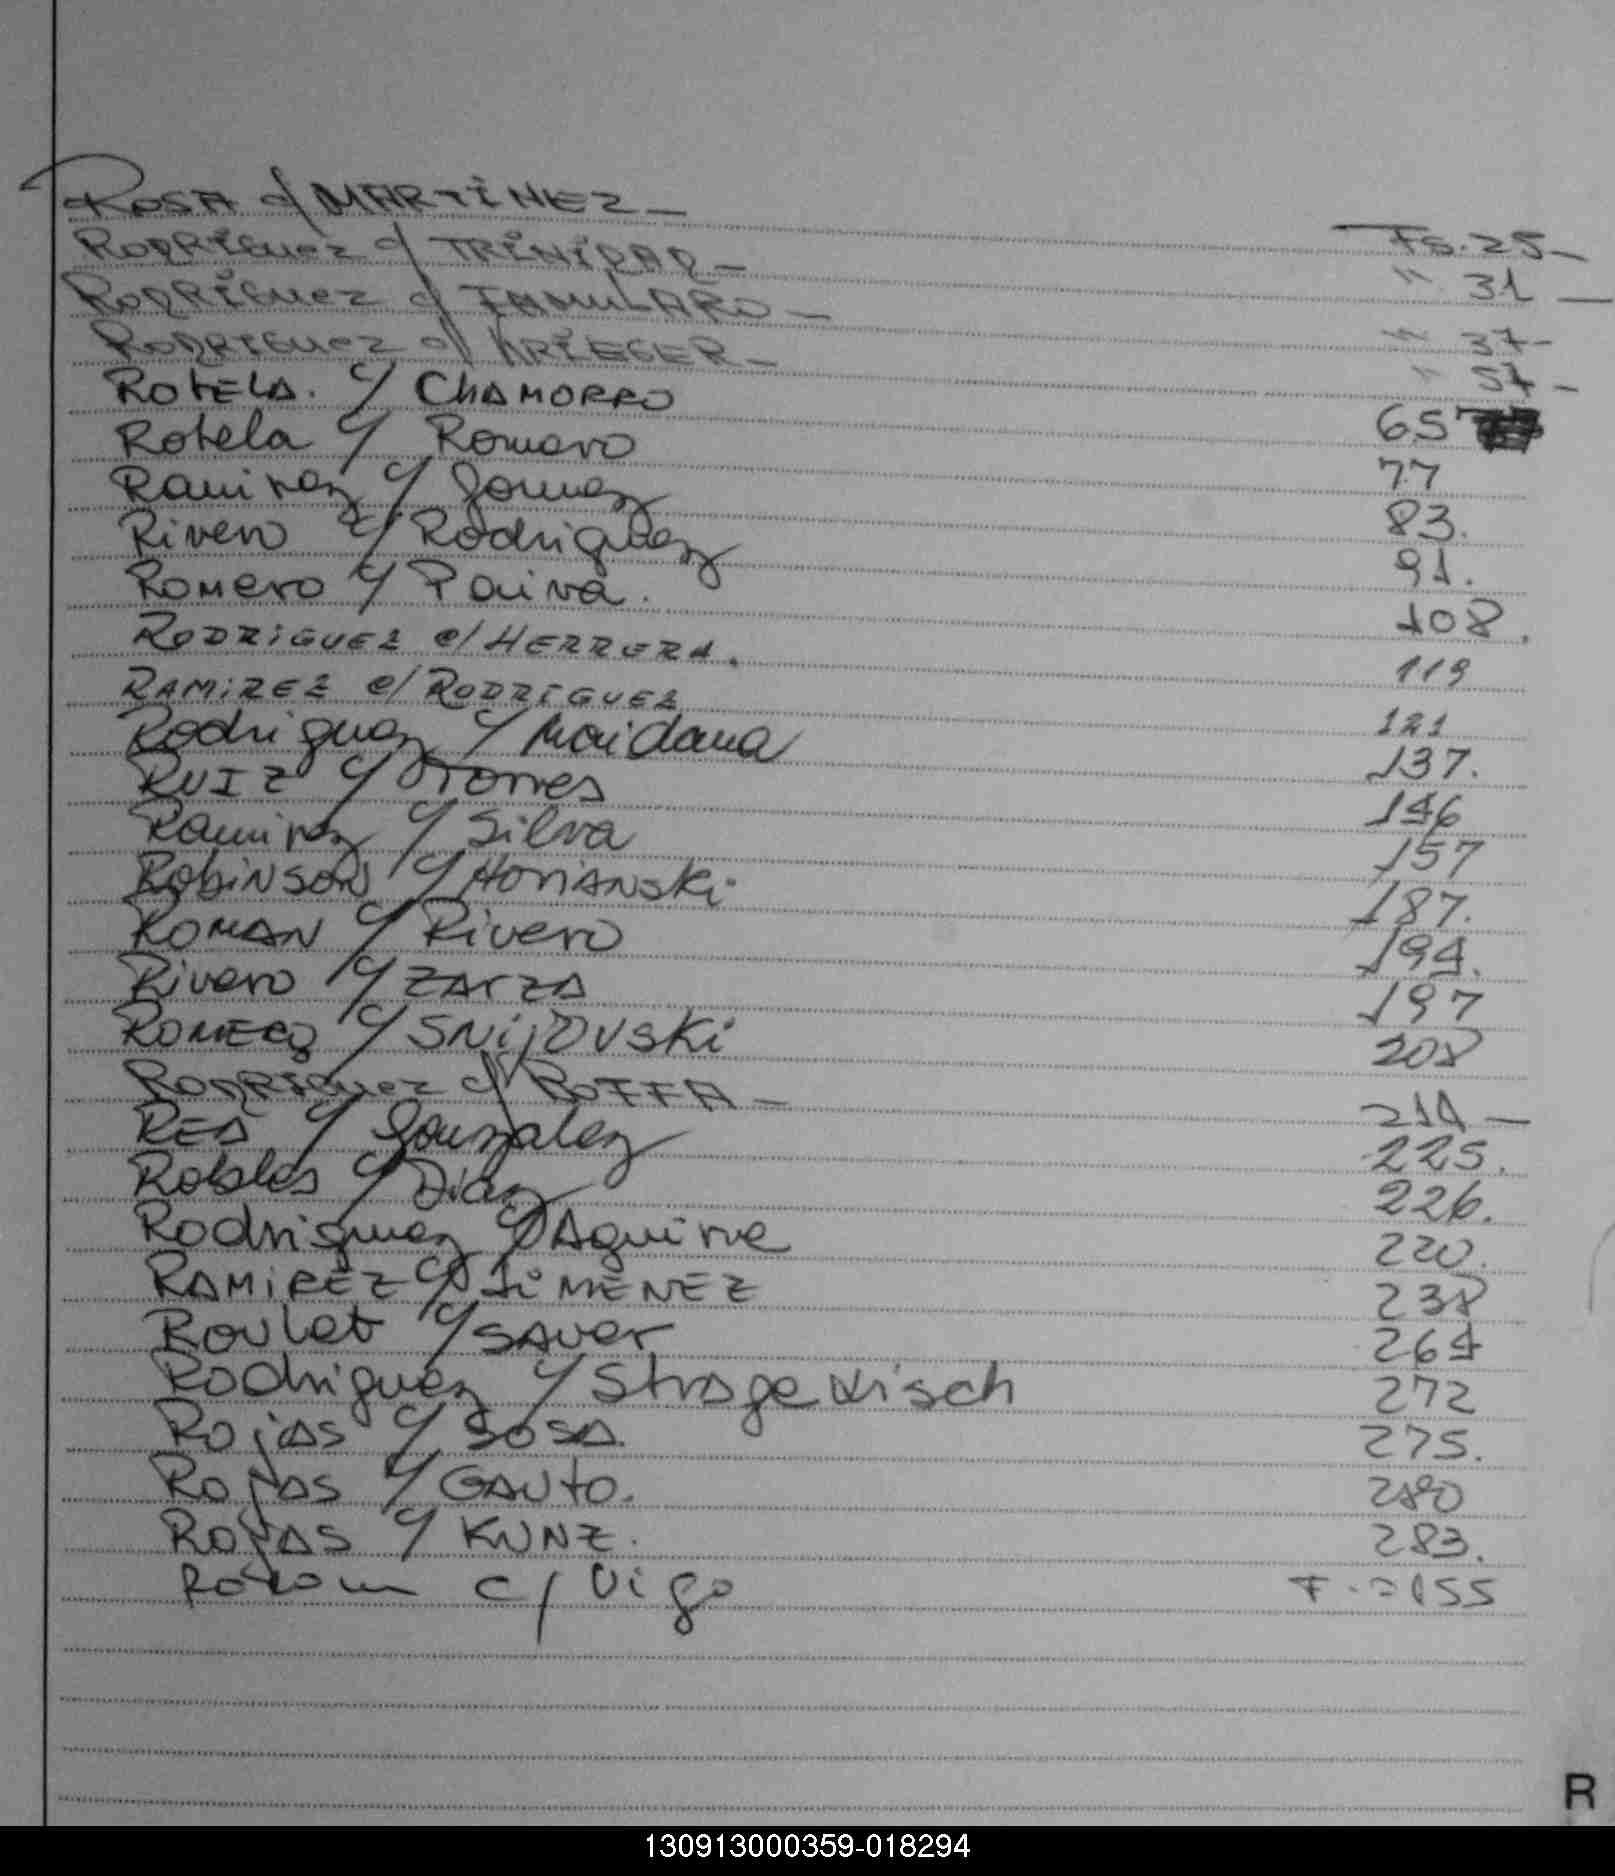 ROSA c/ MARTÍNEZ — Fs. 25 —
RODRÍGUEZ c/ TRINIDAD — " 31 —
RODRÍGUEZ c/ FAMULARO — " 37 —
RODRIGUEZ c/ KRIEGER — " 57 —
ROTELA. c/ CHAMORRO 65
Rotela c/ Romero 77
Ramirez c/ Gomez 83.
Rivero c/ Rodriguez 91.
Romero c/ Paiva. 108.
RODRIGUEZ c/ HERRERA. 119
RAMIREZ c/ RODRIGUEZ 121
Rodriguez c/ Maidana 137.
RUIZ c/ Torres 146
Ramirez c/ Silva 157
Robinson c/ 187.
ROMAN c/ Rivero 194.
Rivero c/ ZARZA 197
ROMERO c/ 208
RODRÍGUEZ c/ BOFFA — 214 —
REA c/ Gonzalez 225.
Robles c/ Diaz 226.
Rodriguez c/ Aguirre 220.
RAMIREZ c/ JIMENEZ 238
Roulet c/ SAUER 264
Rodriguez c/ 272
ROJAS c/ SOSA. 275.
ROJAS c/ GAUTO. 280
ROJAS c/ KUNZ. 283.
c/ Vigo
R
130913000359-018294